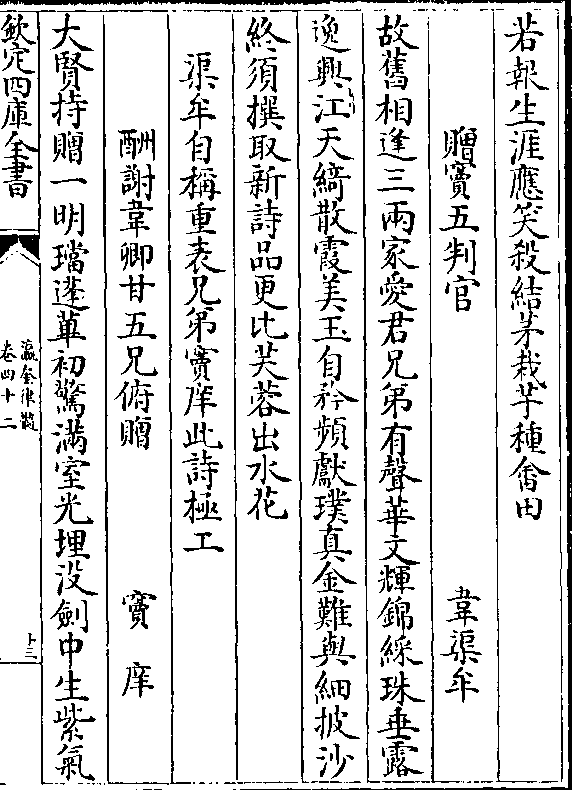 若報生涯應笑殺結茅栽芋種畬田
贈竇五判官
韋渠牟
故舊相逢三兩家愛君兄弟有聲華文輝錦綵珠垂露
逸興江天綺散霞美玉自矜頻獻璞真金難與細披沙
終須撰取新詩品更比芙蓉出水花
渠牟自稱重表兄弟竇庠此詩極工
酬謝韋卿甘五兄俯贈
竇庠
大賢持贈一明璫蓬蓽初驚滿室光埋没劍中生紫氣
欽定四庫全書
瀛奎律髓
卷四十二
十三